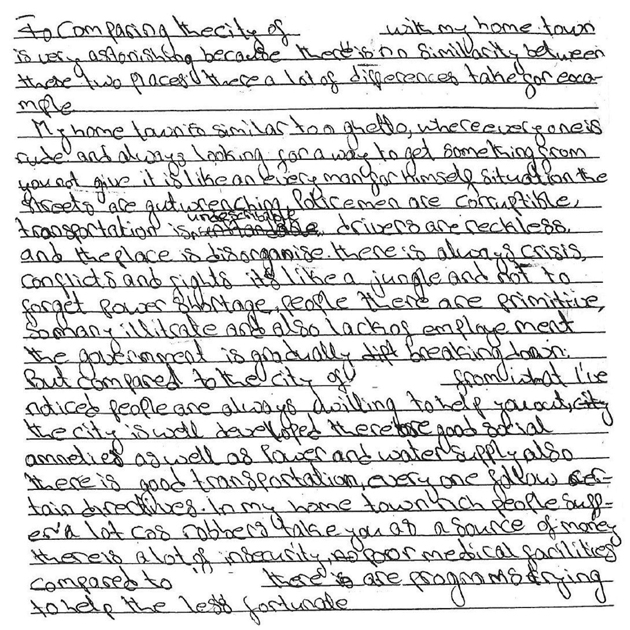 To Comparing the city of with my home town
is very astonishing because there is no simillarity between
these two places there a lot of differences take for exca-
mple
My home town is similar to a ghetto, where every one is
rude and always looking for a way to get something from
you not give it is like an every man for himself situation the
streets are gutwrenching, Policemen are corruptible,
transportation is undescribible, drivers are reckless,
and the place is disorganise. there is always crisis,
conflicts and fights it's like a jungle and not to
forget Power shortage, people there are primitive,
so many illitrate and also lack of employe ment
the government is gradually breaking down.
But compared to the city of from what I've
noticed people are always willing to help you out,
the city is well developed there are good social
amneties as well as Power and water supply also
there is good transportation, every one follow cer-
tain directives. In my home town rich people suff-
er a lot cos robbers take you as a source of money
there is a lot of insecurity, poor medical facilities
compared to there are programs trying
to help the less fortunate